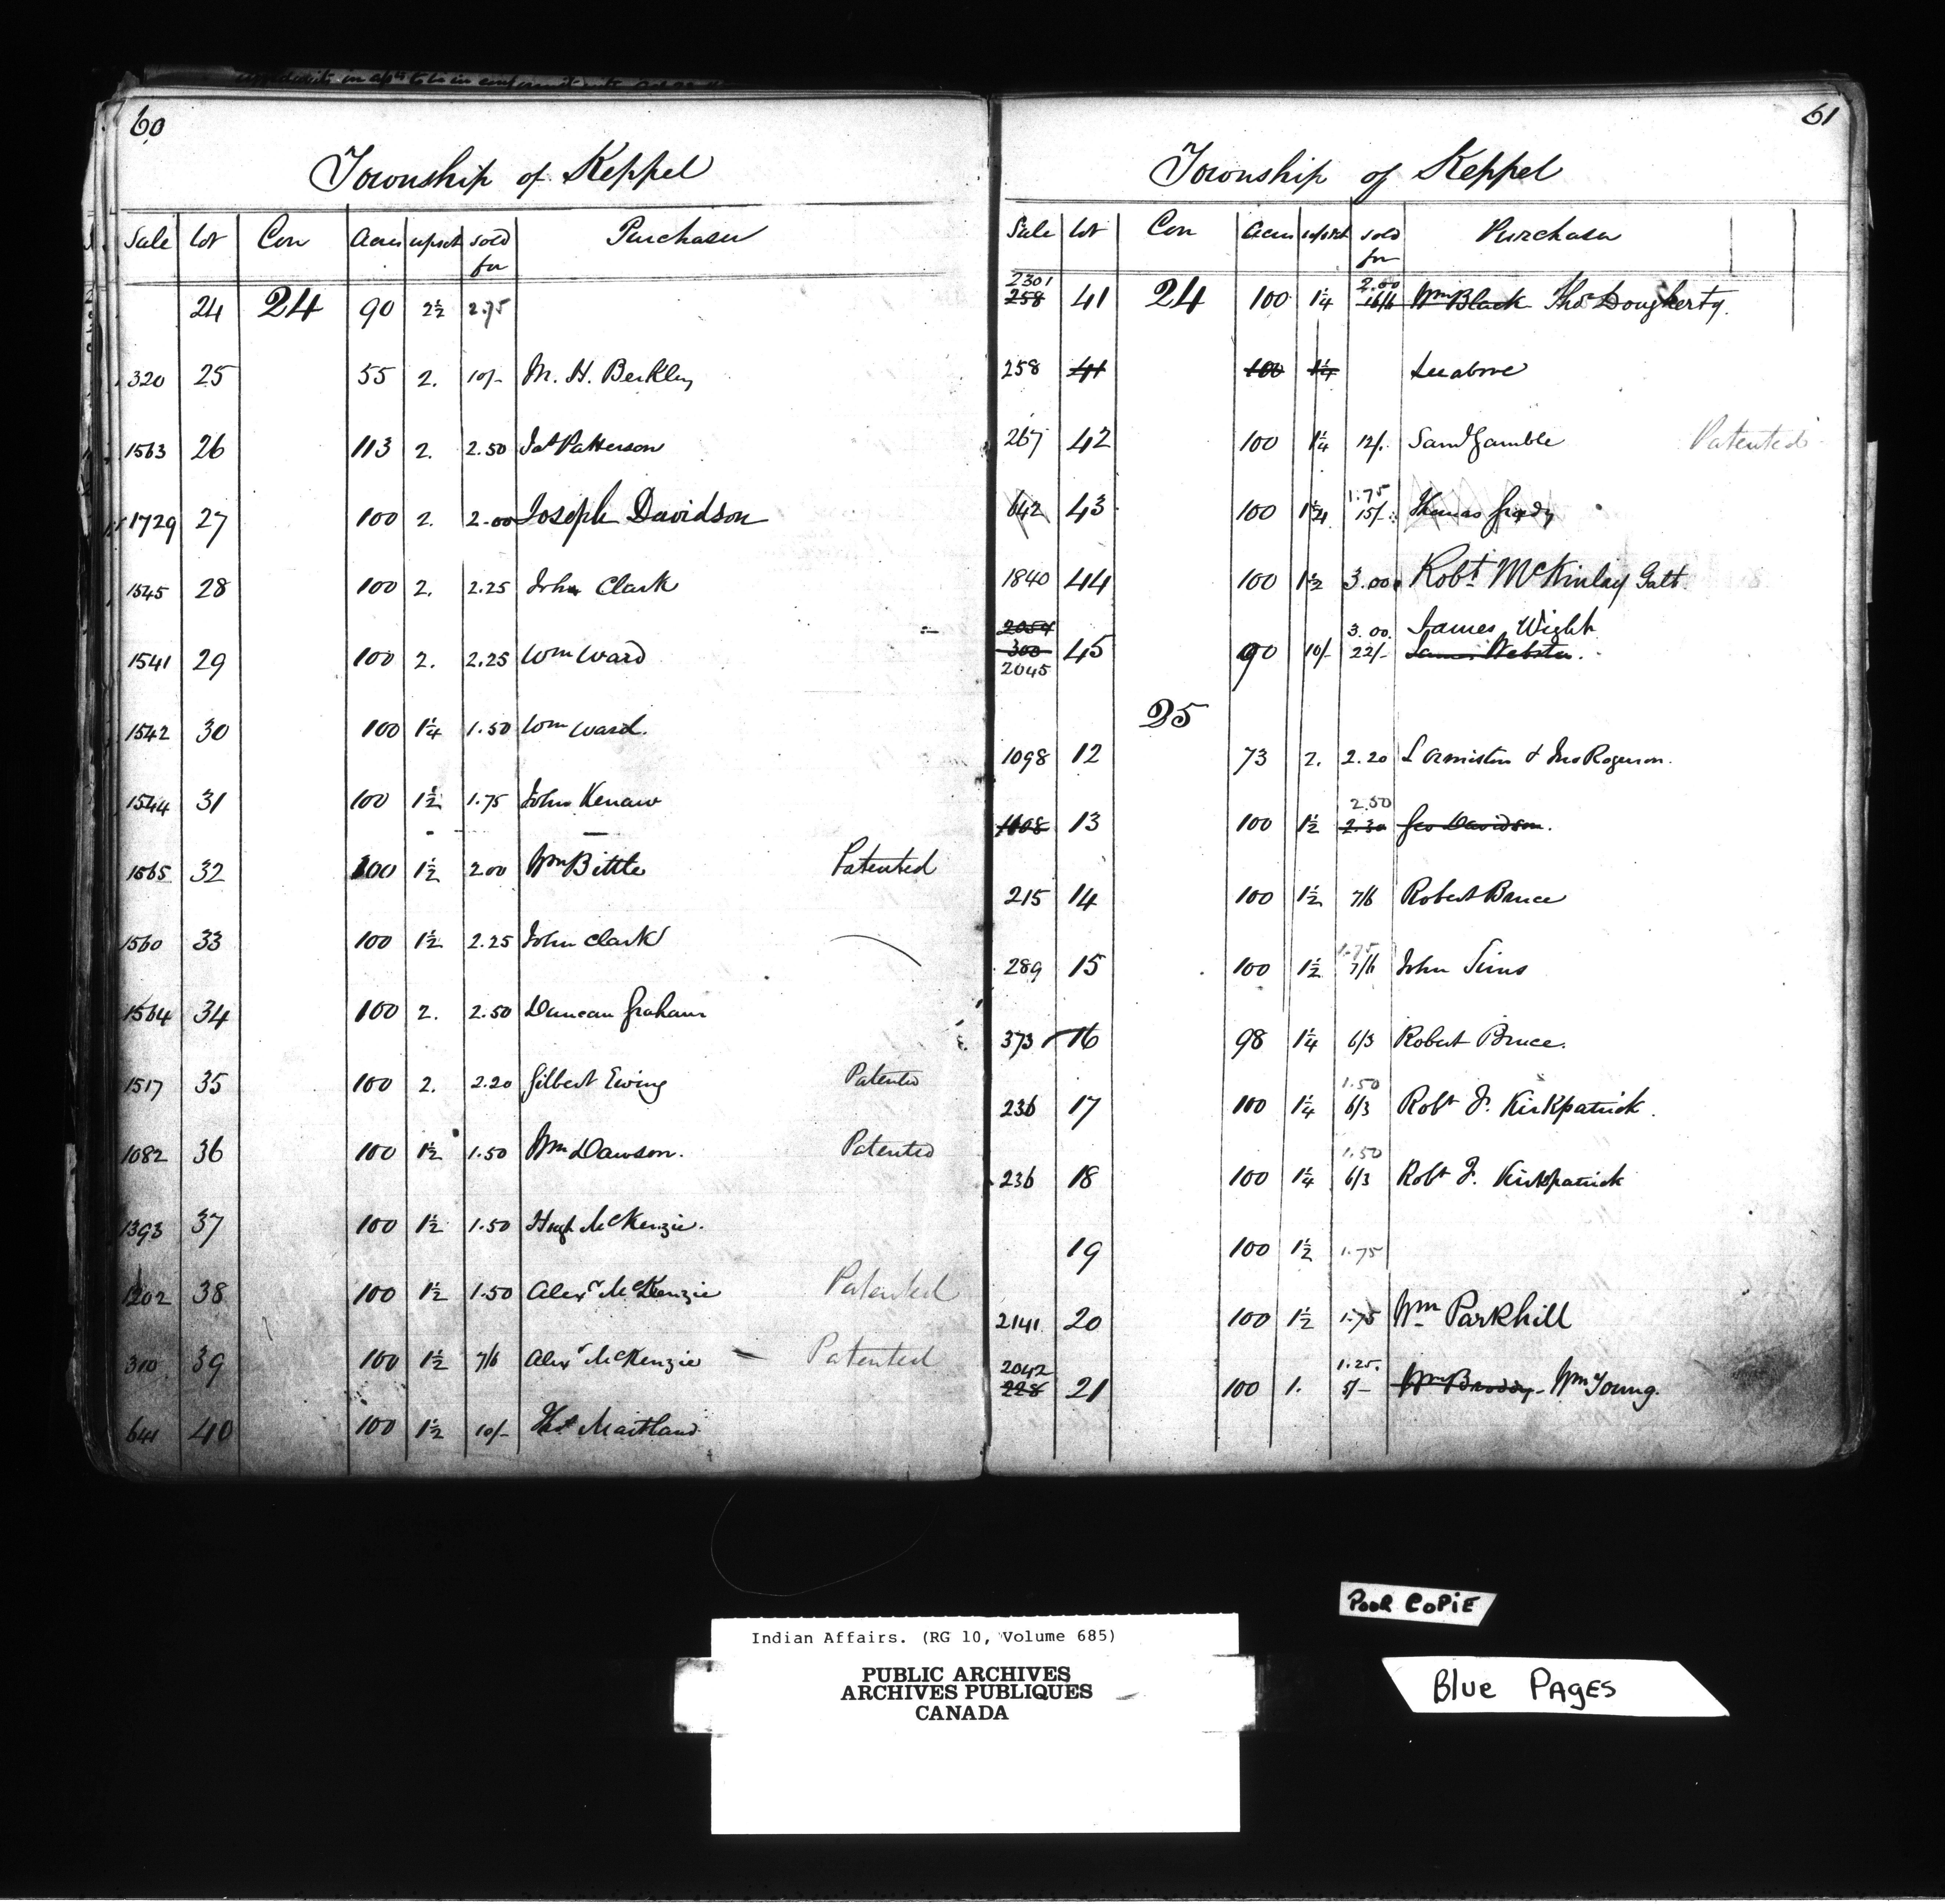 60
Township of Keppel
Sale Lot Con Acres upset sold for Purchaser
24 24 90 2½ 2.75
320 25 55 2. 10/- M. H. Berkley
1563 26 113 2. 2.50 Jas Patterson
1729 27 100 2. 2.00 Joseph Davidson
1545 28 100 2. 2.25 John Clark
1541 29 100 2. 2.25 Wm Ward
1542 30 100 1¼ 1.50 Wm Ward.
1544 31 100 1½ 1.75 John
1565 32 100 1½ 2.00 Wm Bittle Patented
1560 33 100 1½ 2.25 John Clark
1564 34 100 2. 2.50 Duncan Graham
1517 35 100 2. 2.20 Gilbert Ewing Patented
1082 36 100 1½ 1.50 Wm Dawson. Patented
1393 37 100 1½ 1.50 Hugh McKenzie.
1202 38 100 1½ 1.50 Alexr McKenzie Patented
310 39 100 1½ 7/6 Alexr McKenzie Patented
641 40 100 1½ 10/- Thos Maitland
61
Township of Keppel
Sale Lot Con Acres upset sold for Purchaser
2301 2.00
258 41 24 100 1¼ Wm Black Thos Dougherty.
258 41 100 1¼ See above
267 42 100 1¼ 12/. Saml Gamble Patented
1.75
642 43 100 15/- Thomas Grady
1840 44 100 1½ 3.00 Robt McKinlay Galt.
2054 3.00. James Wight
300 45 90 10/- 22/- James Webster.
2045
25
1098 12 73 2. 2.20 L Ormiston & Jno Rogerson.
2.50
1108 13 100 1½ 2.30 Geo Davidson.
215 14 100 1½ 7/6 Robert Bruce
1.75
289 15 100 1½ 7/6 John Sims
373 16 98 1¼ 6/3 Robert Bruce.
1.50
236 17 100 1¼ 6/3 Robt F. Kirkpatrick.
1.50
236 18 100 1¼ 6/3 Robt F. Kirkpatrick
19 100 1½ 1.75
2141 20 100 1½ 1.75 Wm Parkhill
2042 1.25.
228 21 100 1. 5/- Wm Broddy - Wm Young.
POOR COPIE
Indian Affairs. (RG 10, Volume 685)
PUBLIC ARCHIVES
ARCHIVES PUBLIQUES
CANADA
Blue PAgeS